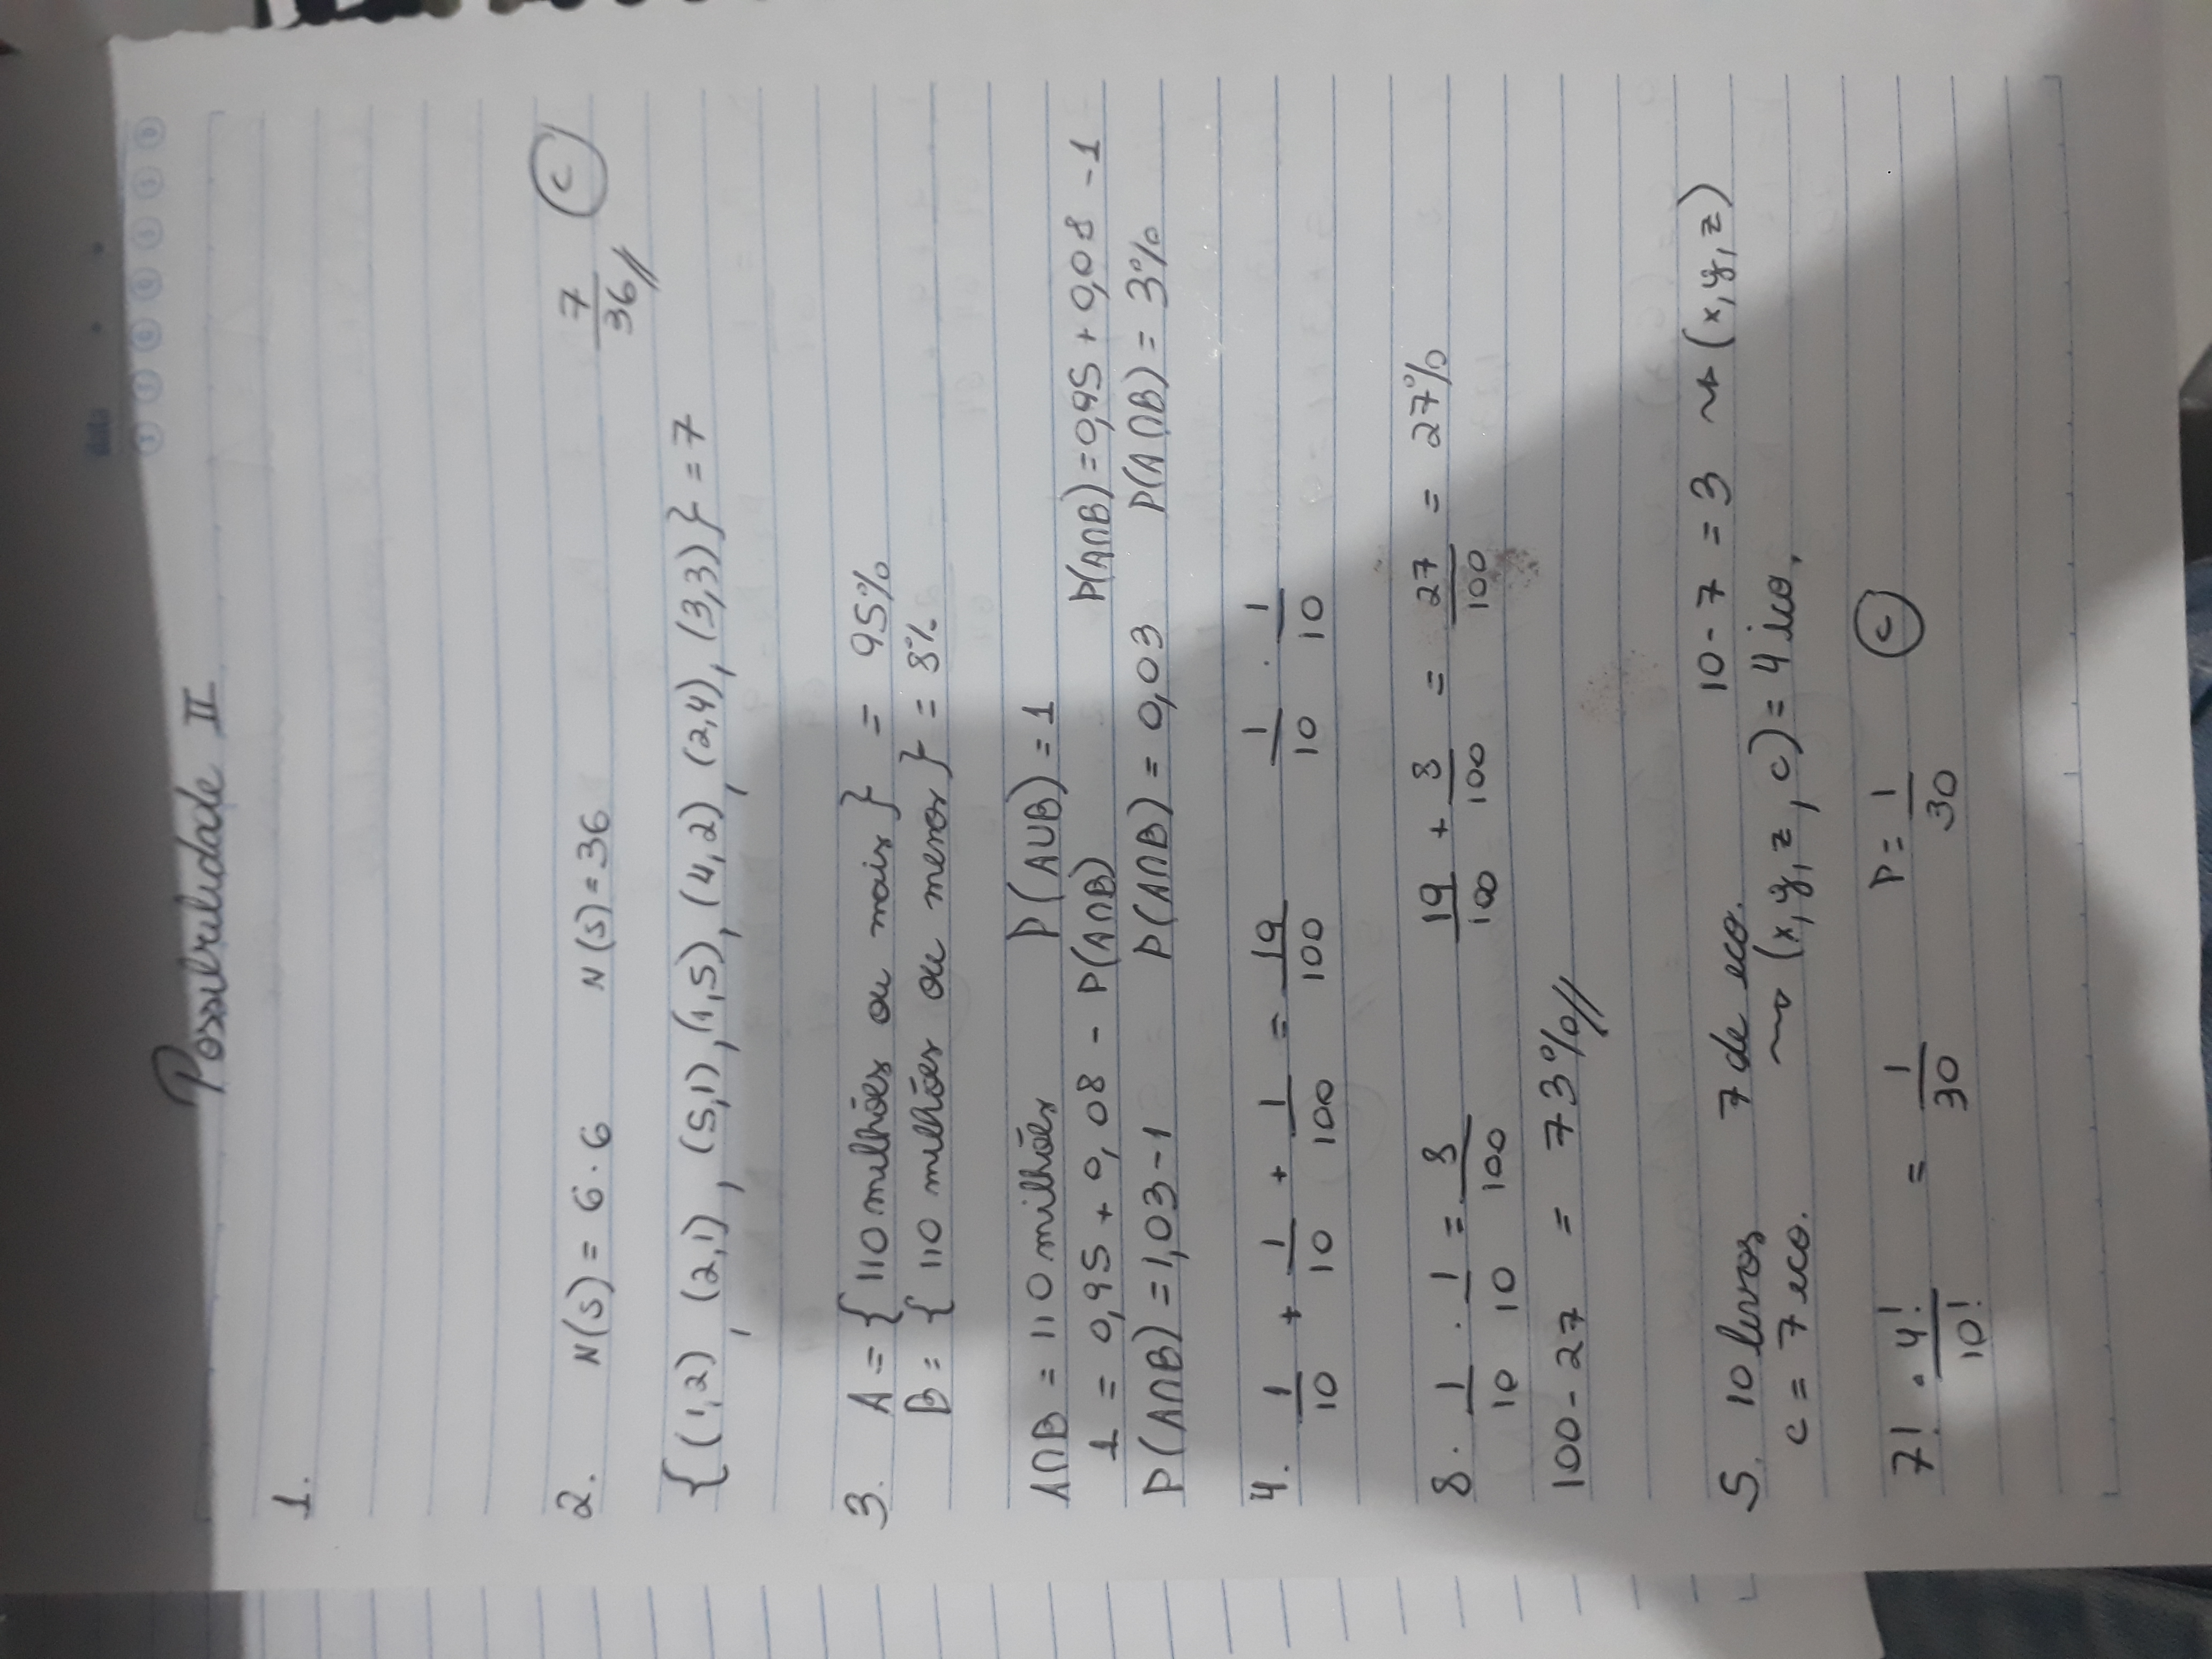 data
D S T Q Q S S
Possibilidade II
1.
2. N(S) = 6 . 6 N(S) = 36 7/36// C
{(1,2), (2,1), (5,1), (1,5), (4,2), (2,4), (3,3)} = 7
3. A = {110 milhões ou mais} = 95%
B = {110 milhões ou menos} = 8%
A∩B = 110 milhões P(A∪B) = 1
1 = 0,95 + 0,08 - P(A∩B) P(A∩B) = 0,95 + 0,08 - 1
P(A∩B) = 1,03 - 1 P(A∩B) = 0,03 P(A∩B) = 3%
4. 1/10 + 1/10 + 1/100 = 19/100 1/10 . 1/10
8 . 1/10 . 1/10 = 8/100 19/100 + 8/100 = 27/100 = 27%
100 - 27 = 73%//
5. 10 livros 7 de eco. 10 - 7 = 3 ⇝ (x, y, z)
c = 7 eco. ⇝ (x, y, z, c) = 4 ico.
7! . 4!/10! = 1/30 P = 1/30 C